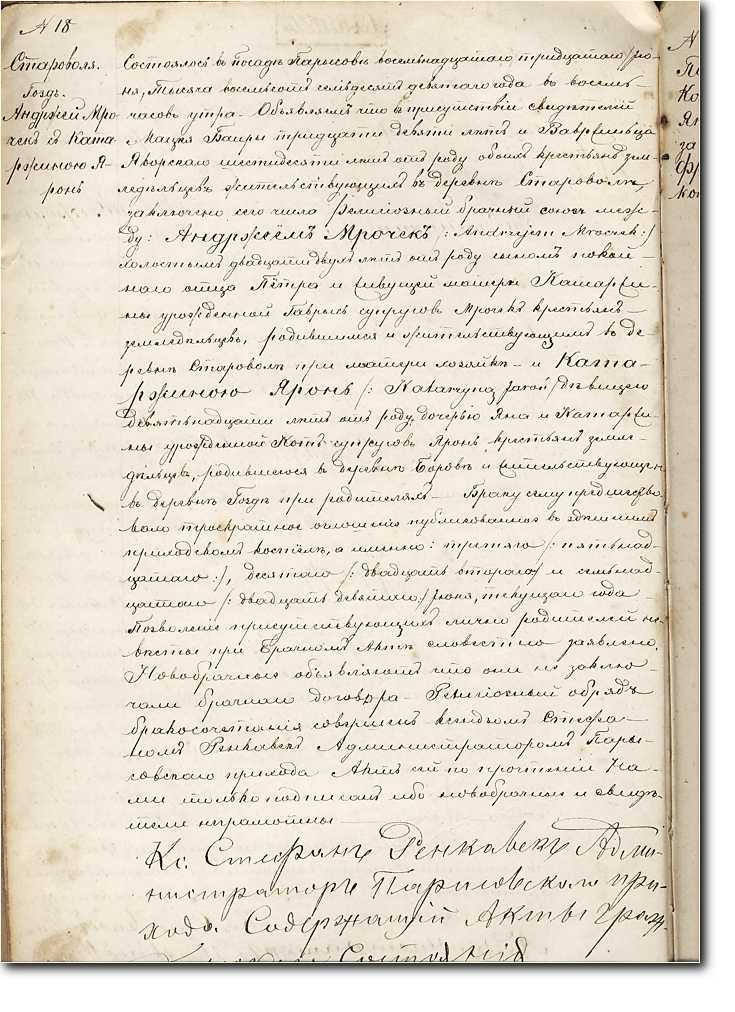 N 18
Староволя.
Гоздъ.
Анджей Мро-
чекъ съ Ката-
ржиною Я-
ронь
Состоялось въ посадѣ Парысовѣ восемьнадцатаго /тридцатаго/ Iю-
ня, тысяча восемьсотъ семьдесятъ девятаго года въ восемь
часовъ утра. Объявляемъ что въ присутствiи свидѣтелей
Мацея Баиры тридцати девяти лѣтъ и Вавржеńца
Яворскаго шестидесяти лѣтъ отъ роду обоихъ крестьянъ зем-
ледѣльцевъ жительствующихъ въ деревнѣ Староволѣ,
заключено сего числа религiозный брачный союзъ меж-
ду: Анджеемъ Мрочекъ /: Andrzejem Mroczek :/
холостымъ двадцати двухъ лѣтъ отъ роду сыномъ покой-
наго отца Петра и живущей матери Катаржи-
ны урожденной Гаврысь супруговъ Мрочекъ крестьянъ
земледѣльцевъ, родившимся и жительствующимъ въ де-
ревнѣ Староволѣ при матери хозяйкѣ - и Ката-
ржиною Яронь /: Katarzyną Jaroń :/ дѣвицею
девятьнадцати лѣтъ отъ роду, дочерью Яна и Катаржи-
ны урожденной Котъ супруговъ Яронь крестьянъ земле-
дѣльцевъ, родившеюся въ деревнѣ Боровѣ и жительствующею
въ деревнѣ Гоздѣ при родителяхъ - Браку сему предшество-
вало троекратное оглашенiе публикованное въ здѣшнемъ
приходскомъ костёлѣ, а именно: третяго /: пятьнад-
цатаго :/, десятаго /: двадцать втораго / и семьнад-
цатаго /: двадцать девятаго / Iюня, текущаго года -
Позволенiе присутствующихъ лично родителей не-
вѣсты при брачномъ Актѣ словестно заявлено.
Новобрачные объявляютъ что они не заклю-
чали брачнаго договора - Религiозный обрядъ
бракосочетанiя совершенъ ксендзомъ Стефа-
номъ Ренкавекъ Администраторомъ Пары-
совскаго прихода. Актъ сей по прочтенiи На-
ми только подписанъ ибо новобрачные и свидѣ-
тели неграмотны
Кс. Стефанъ Ренкавекъ Адми-
нистраторъ Парисовскаго при-
хода Содержащiй Акты граж-
Состоянiя